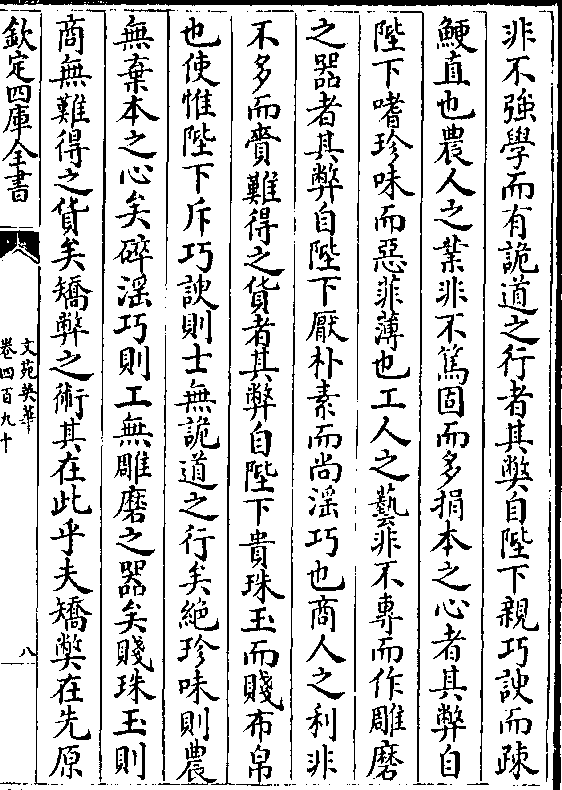 非不強學而有詭道之行者其弊自陛下親巧諛而疎
鯁直也農人之業非不篤固而多捐本之心者其弊自
陛下嗜珍味而惡菲薄也工人之藝非不專而作雕磨
之器者其弊自陛下厭朴素而尚滛巧也商人之利非
不多而賷難得之貨者其弊自陛下貴珠玉而賤布帛
也使惟陛下斥巧諛則士無詭道之行矣絶珍味則農
無棄本之心矣碎滛巧則工無雕磨之器矣賤珠玉則
商無難得之貨矣矯弊之術其在此乎夫矯弊在先原
欽定四庫全書
文苑英華
卷四百九十
八